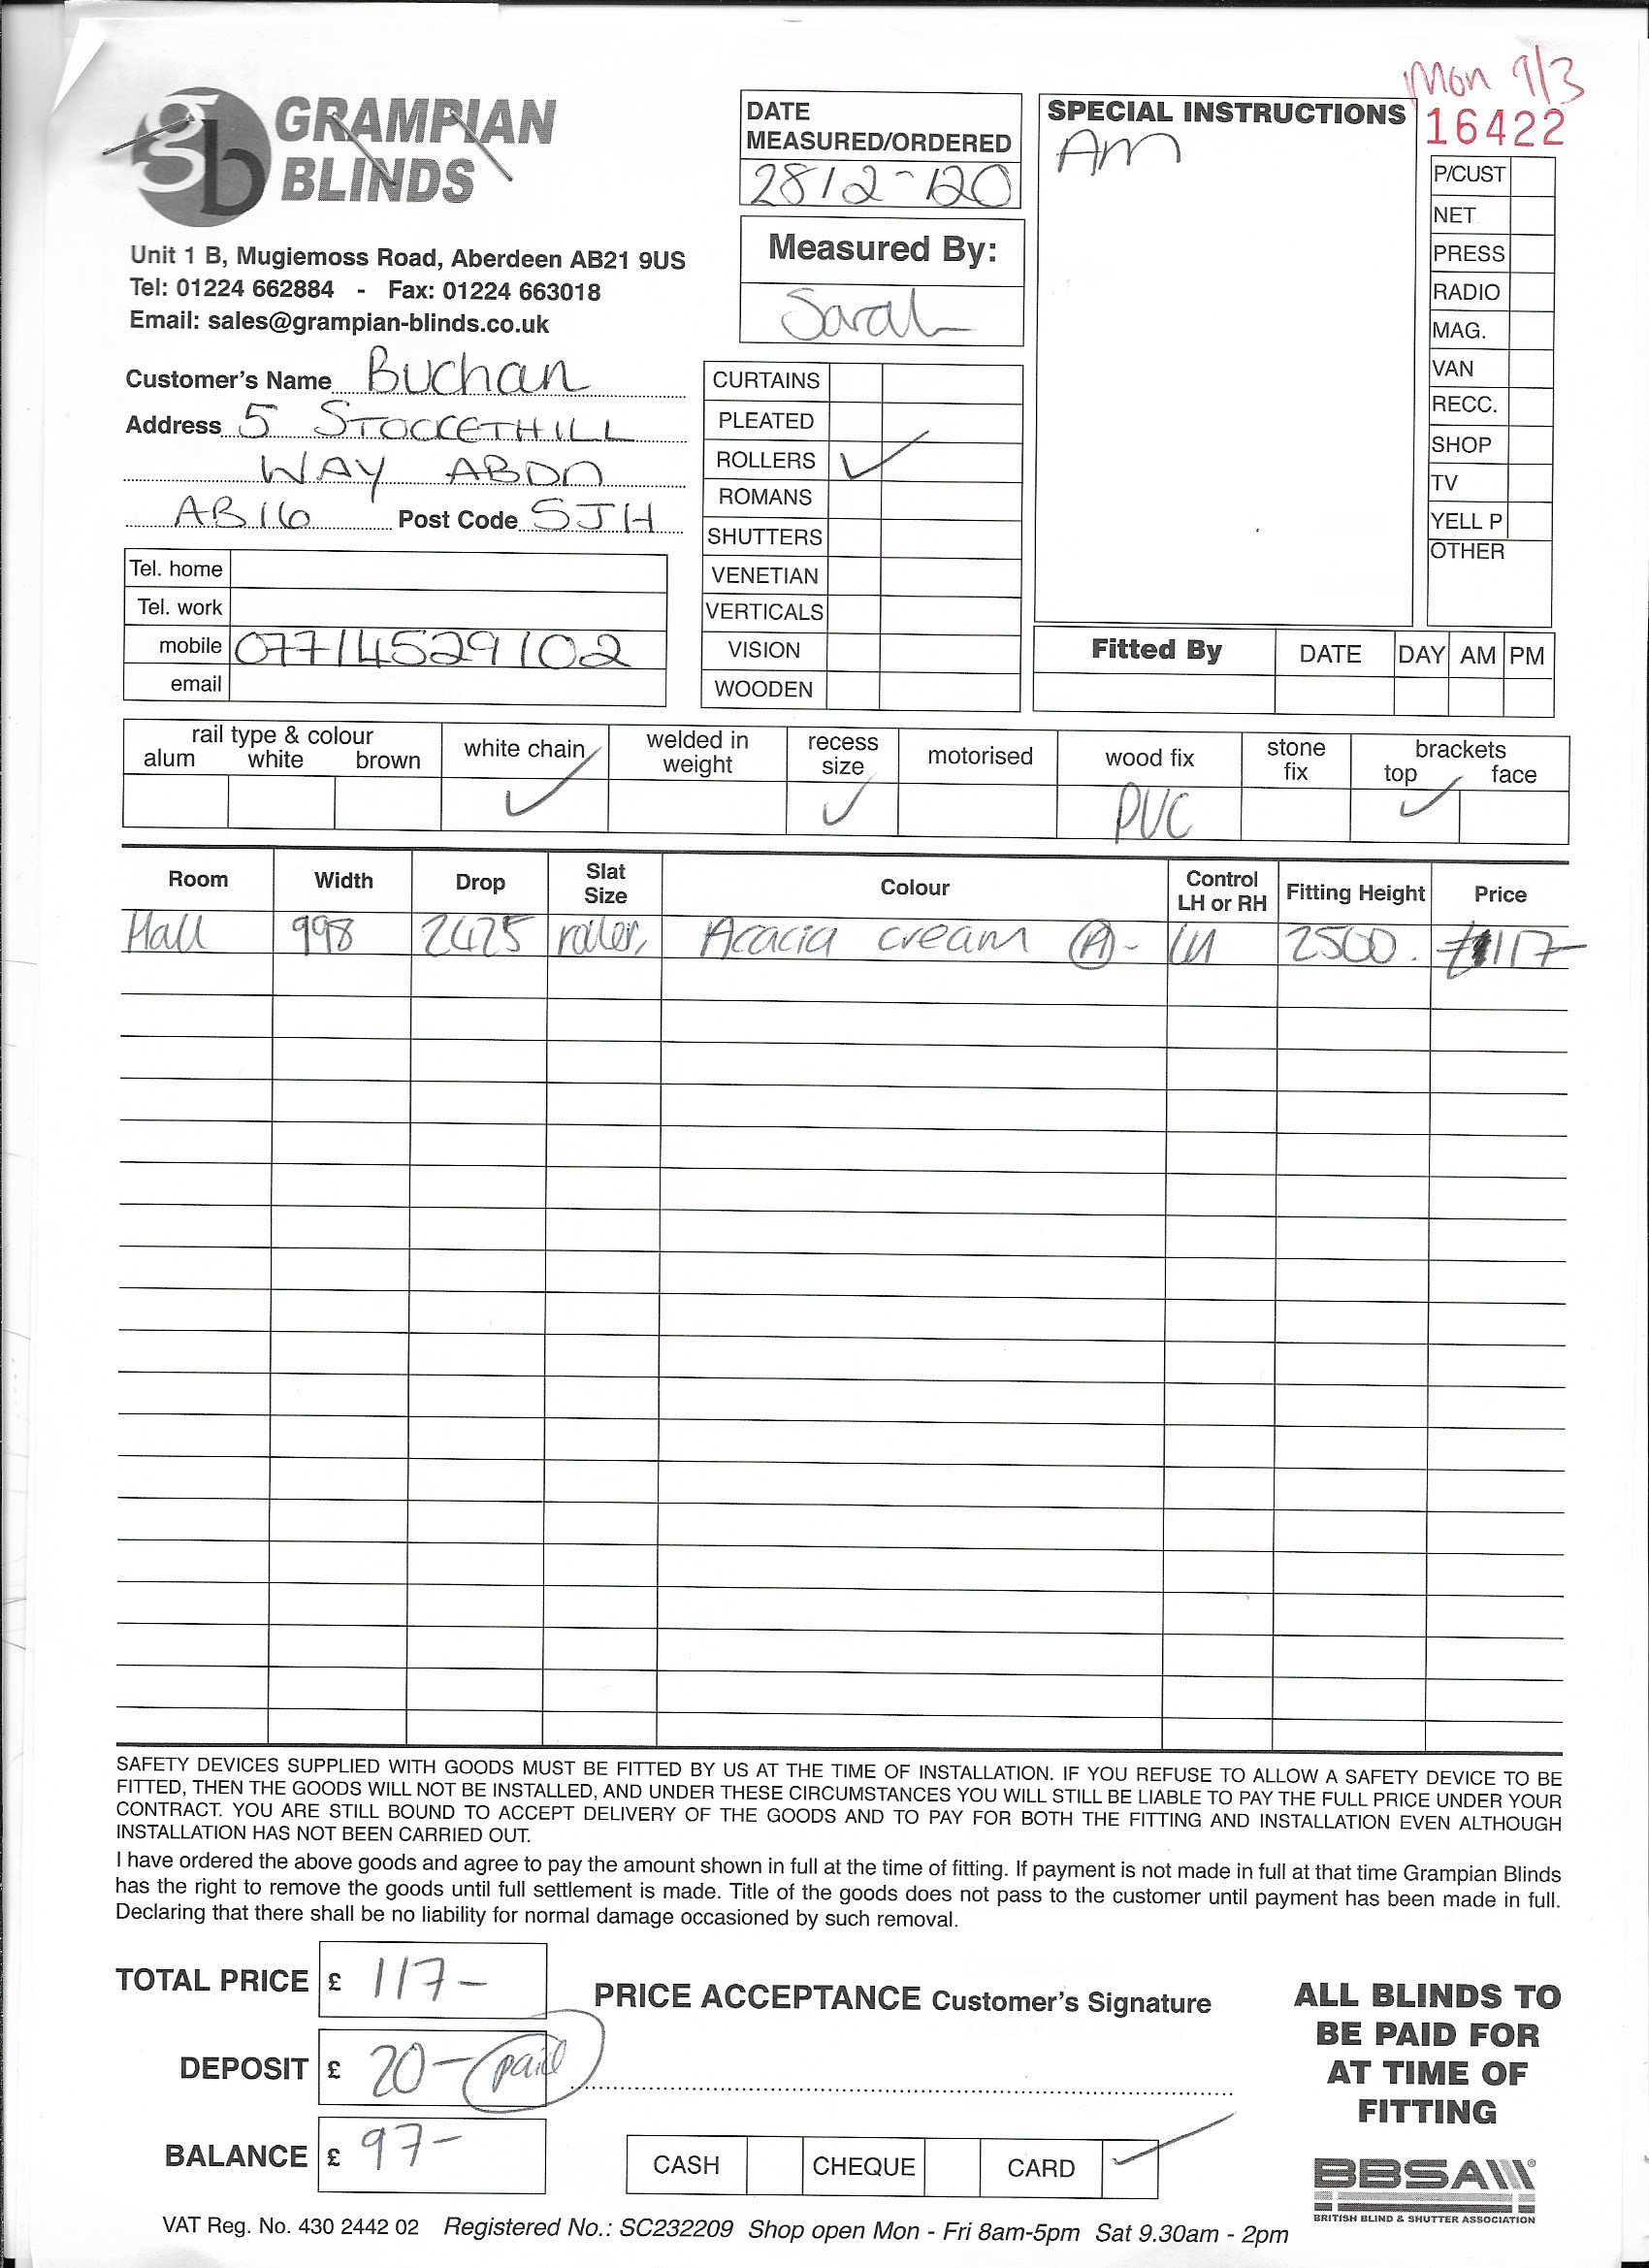 Mon 9/3
16422
gb GRAMPIAN
BLINDS
Unit 1 B, Mugiemoss Road, Aberdeen AB21 9US
Tel: 01224 662884 - Fax: 01224 663018
Email: sales@grampian-blinds.co.uk
DATE
MEASURED/ORDERED
28/2-120
Measured By:
Sarah
SPECIAL INSTRUCTIONS
Am
P/CUST
NET
PRESS
RADIO
MAG.
VAN
RECC.
SHOP
TV
YELL P
OTHER
Customer's Name Buchan
Address 5 STOCKETHILL
WAY ABDN
AB16 Post Code 5JH
Tel. home
Tel. work
mobile 07714529102
email
CURTAINS
PLEATED
ROLLERS ✓
ROMANS
SHUTTERS
VENETIAN
VERTICALS
VISION
WOODEN
Fitted By DATE DAY AM PM
rail type & colour
alum white brown
white chain ✓
welded in
weight
recess
size ✓
motorised
wood fix
PVC
stone
fix
brackets
top ✓ face
Room Width Drop Slat Size Colour Control LH or RH Fitting Height Price
Hall 998 2425 roller, Acacia cream (A)- LH 2500. £117-
SAFETY DEVICES SUPPLIED WITH GOODS MUST BE FITTED BY US AT THE TIME OF INSTALLATION. IF YOU REFUSE TO ALLOW A SAFETY DEVICE TO BE
FITTED, THEN THE GOODS WILL NOT BE INSTALLED, AND UNDER THESE CIRCUMSTANCES YOU WILL STILL BE LIABLE TO PAY THE FULL PRICE UNDER YOUR
CONTRACT. YOU ARE STILL BOUND TO ACCEPT DELIVERY OF THE GOODS AND TO PAY FOR BOTH THE FITTING AND INSTALLATION EVEN ALTHOUGH
INSTALLATION HAS NOT BEEN CARRIED OUT.
I have ordered the above goods and agree to pay the amount shown in full at the time of fitting. If payment is not made in full at that time Grampian Blinds
has the right to remove the goods until full settlement is made. Title of the goods does not pass to the customer until payment has been made in full.
Declaring that there shall be no liability for normal damage occasioned by such removal.
TOTAL PRICE £ 117-
DEPOSIT £ 20- paid
BALANCE £ 97-
PRICE ACCEPTANCE Customer's Signature
CASH CHEQUE CARD ✓
ALL BLINDS TO
BE PAID FOR
AT TIME OF
FITTING
BBSA
BRITISH BLIND & SHUTTER ASSOCIATION
VAT Reg. No. 430 2442 02 Registered No.: SC232209 Shop open Mon - Fri 8am-5pm Sat 9.30am - 2pm